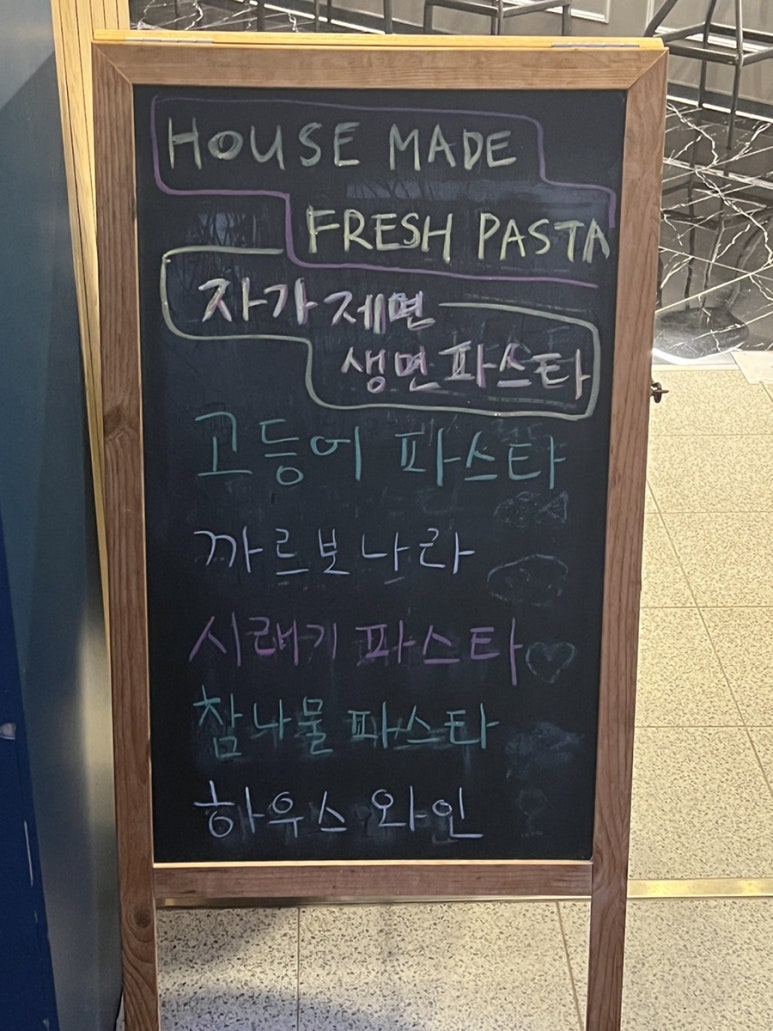 HOUSE MADE
FRESH PASTA
자가제면
생면파스타
고등어 파스타
까르보나라
시래기 파스타
참나물 파스타
하우스 와인